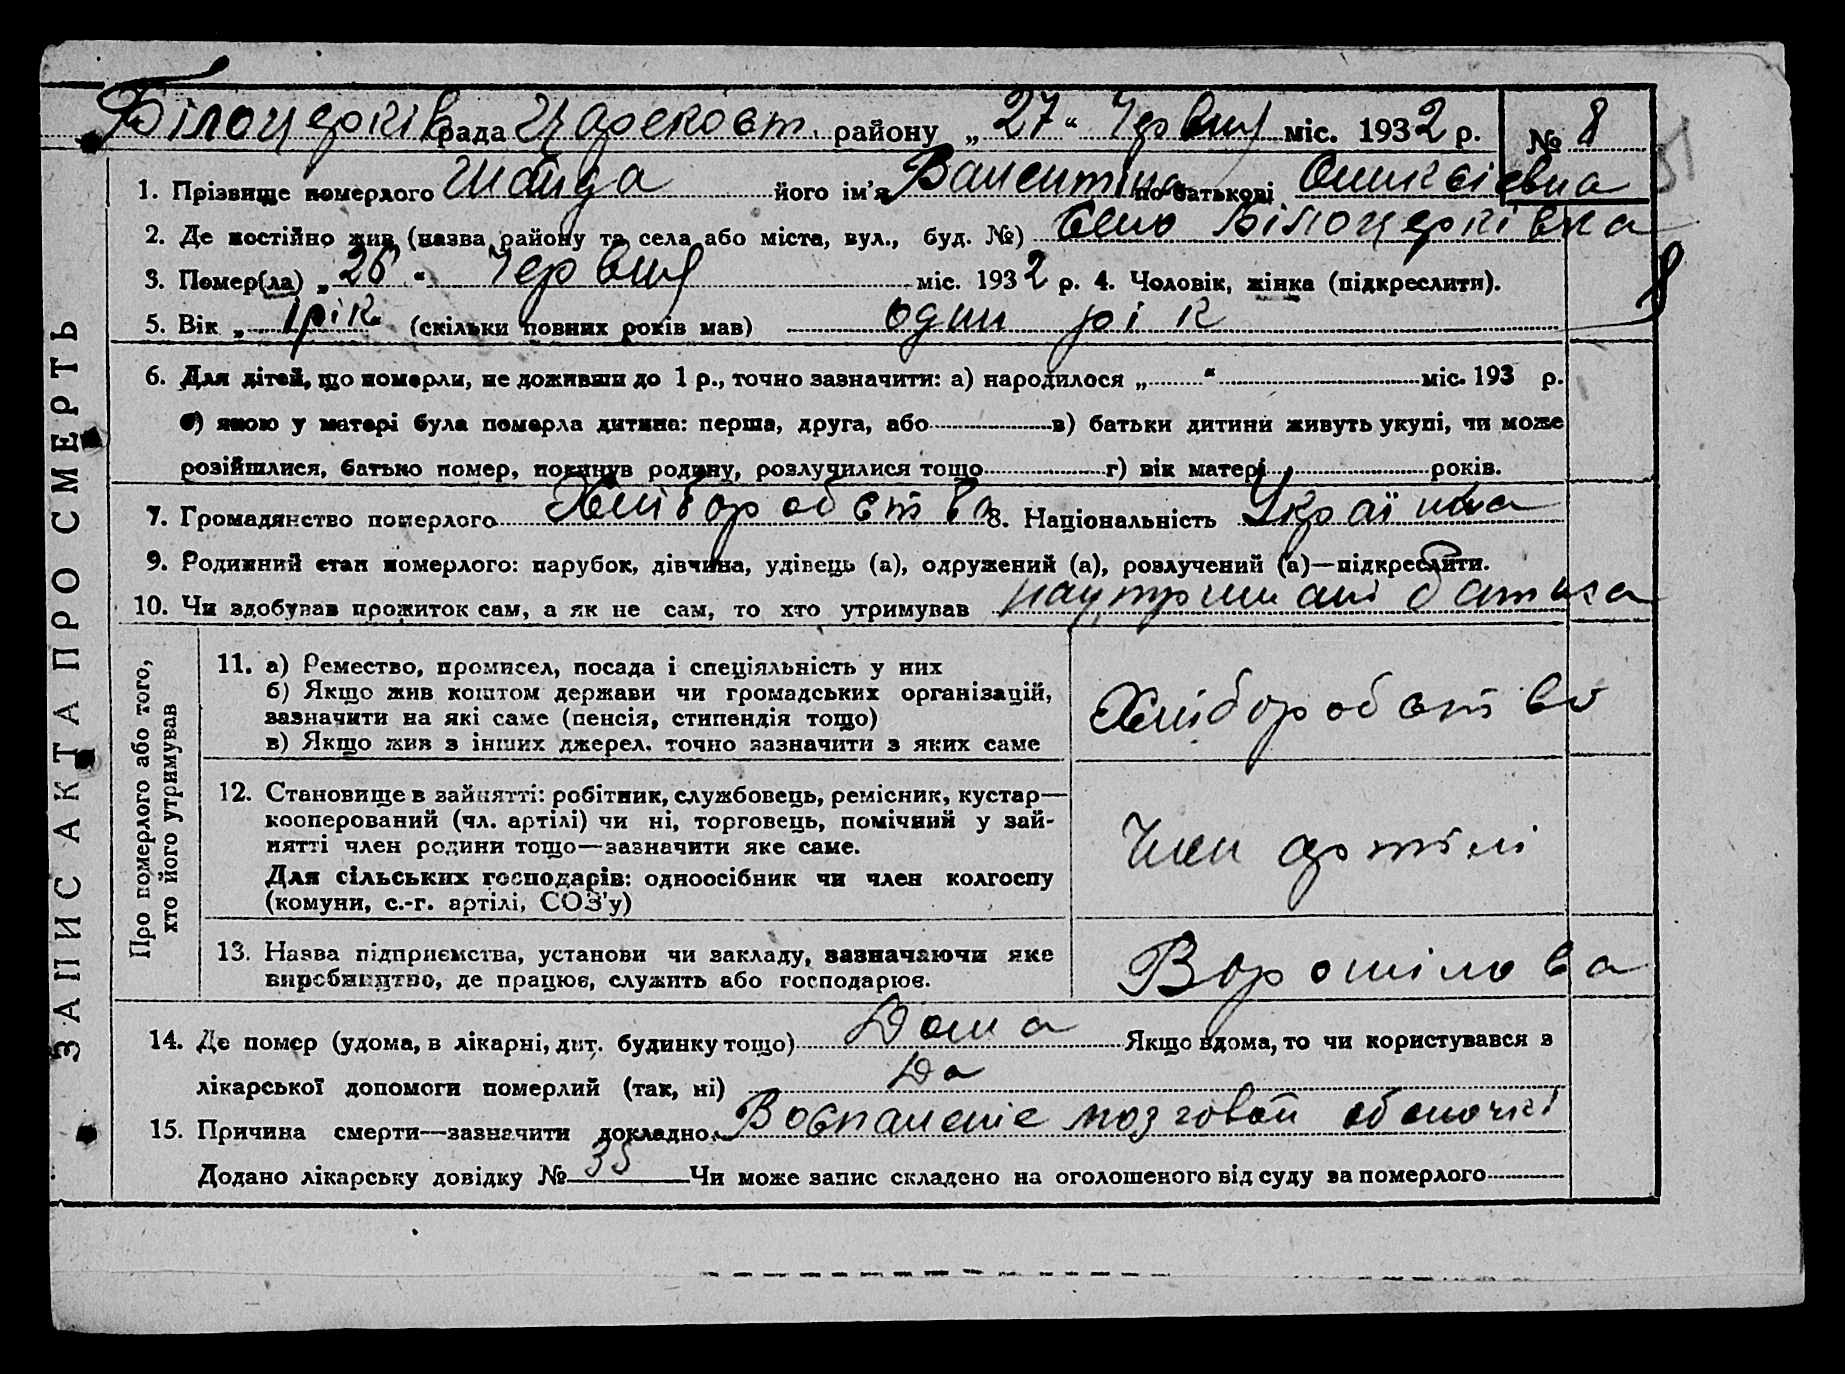 Білоцерків рада Царекост. району „27“ Червня міс. 1932 р. № 8
1. Прізвище померлого Шайда його ім'я Валентіна по батькові Оликсіевна
2. Де постійно жив (назва району та села або міста, вул., буд. №) Село Білоцерківка
3. Помер(ла) „26“ Червня міс. 1932 р. 4. Чоловік, жінка (підкреслити).
8
5. Вік „ 1 рік (скільки повних років мав) один рік
6. Для дітей, що померли, не доживши до 1 р., точно зазначити: а) народилося „ “ міс. 193 р.
б) якою у матері була померла дитина: перша, друга, або в) батьки дитини живуть укупі, чи може
розійшлися, батько помер, покинув родину, розлучилися тощо г) вік матері років.
7. Громадянство померлого Хліборобства 8. Національність Українка
9. Родинний стан померлого: парубок, дівчина, удівець (а), одружений (а), розлучений (а)—підкреслити.
10. Чи здобував прожиток сам, а як не сам, то хто утримував наутримані батька
ЗАПИС АКТА ПРО СМЕРТЬ
Про померлого або того, хто його утримував
11. а) Ремество, промисел, посада і спеціяльність у них
б) Якщо жив коштом держави чи громадських організацій,
зазначити на які саме (пенсія, стипендія тощо)
в) Якщо жив з інших джерел. точно зазначити з яких саме
Хліборобство
12. Становище в зайнятті: робітник, службовець, ремісник, кустар—
кооперований (чл. артілі) чи ні, торговець, помічний у зай-
нятті член родини тощо—зазначити яке саме.
Для сільських господарів: одноосібник чи член колгоспу
(комуни, с.-г. артілі, СОЗ'у)
Член артілі
13. Назва підприємства, установи чи закладу, зазначаючи яке
виробництво, де працює, служить або господарює.
Ворошілова
14. Де помер (удома, в лікарні, дит. будинку тощо) Дома Якщо вдома, то чи користувався з
лікарської допомоги померлий (так, ні) Да
15. Причина смерти—зазначити докладно Воспаленіе мозговой оболочкі
Додано лікарську довідку № 35 Чи може запис складено на оголошеного від суду за померлого